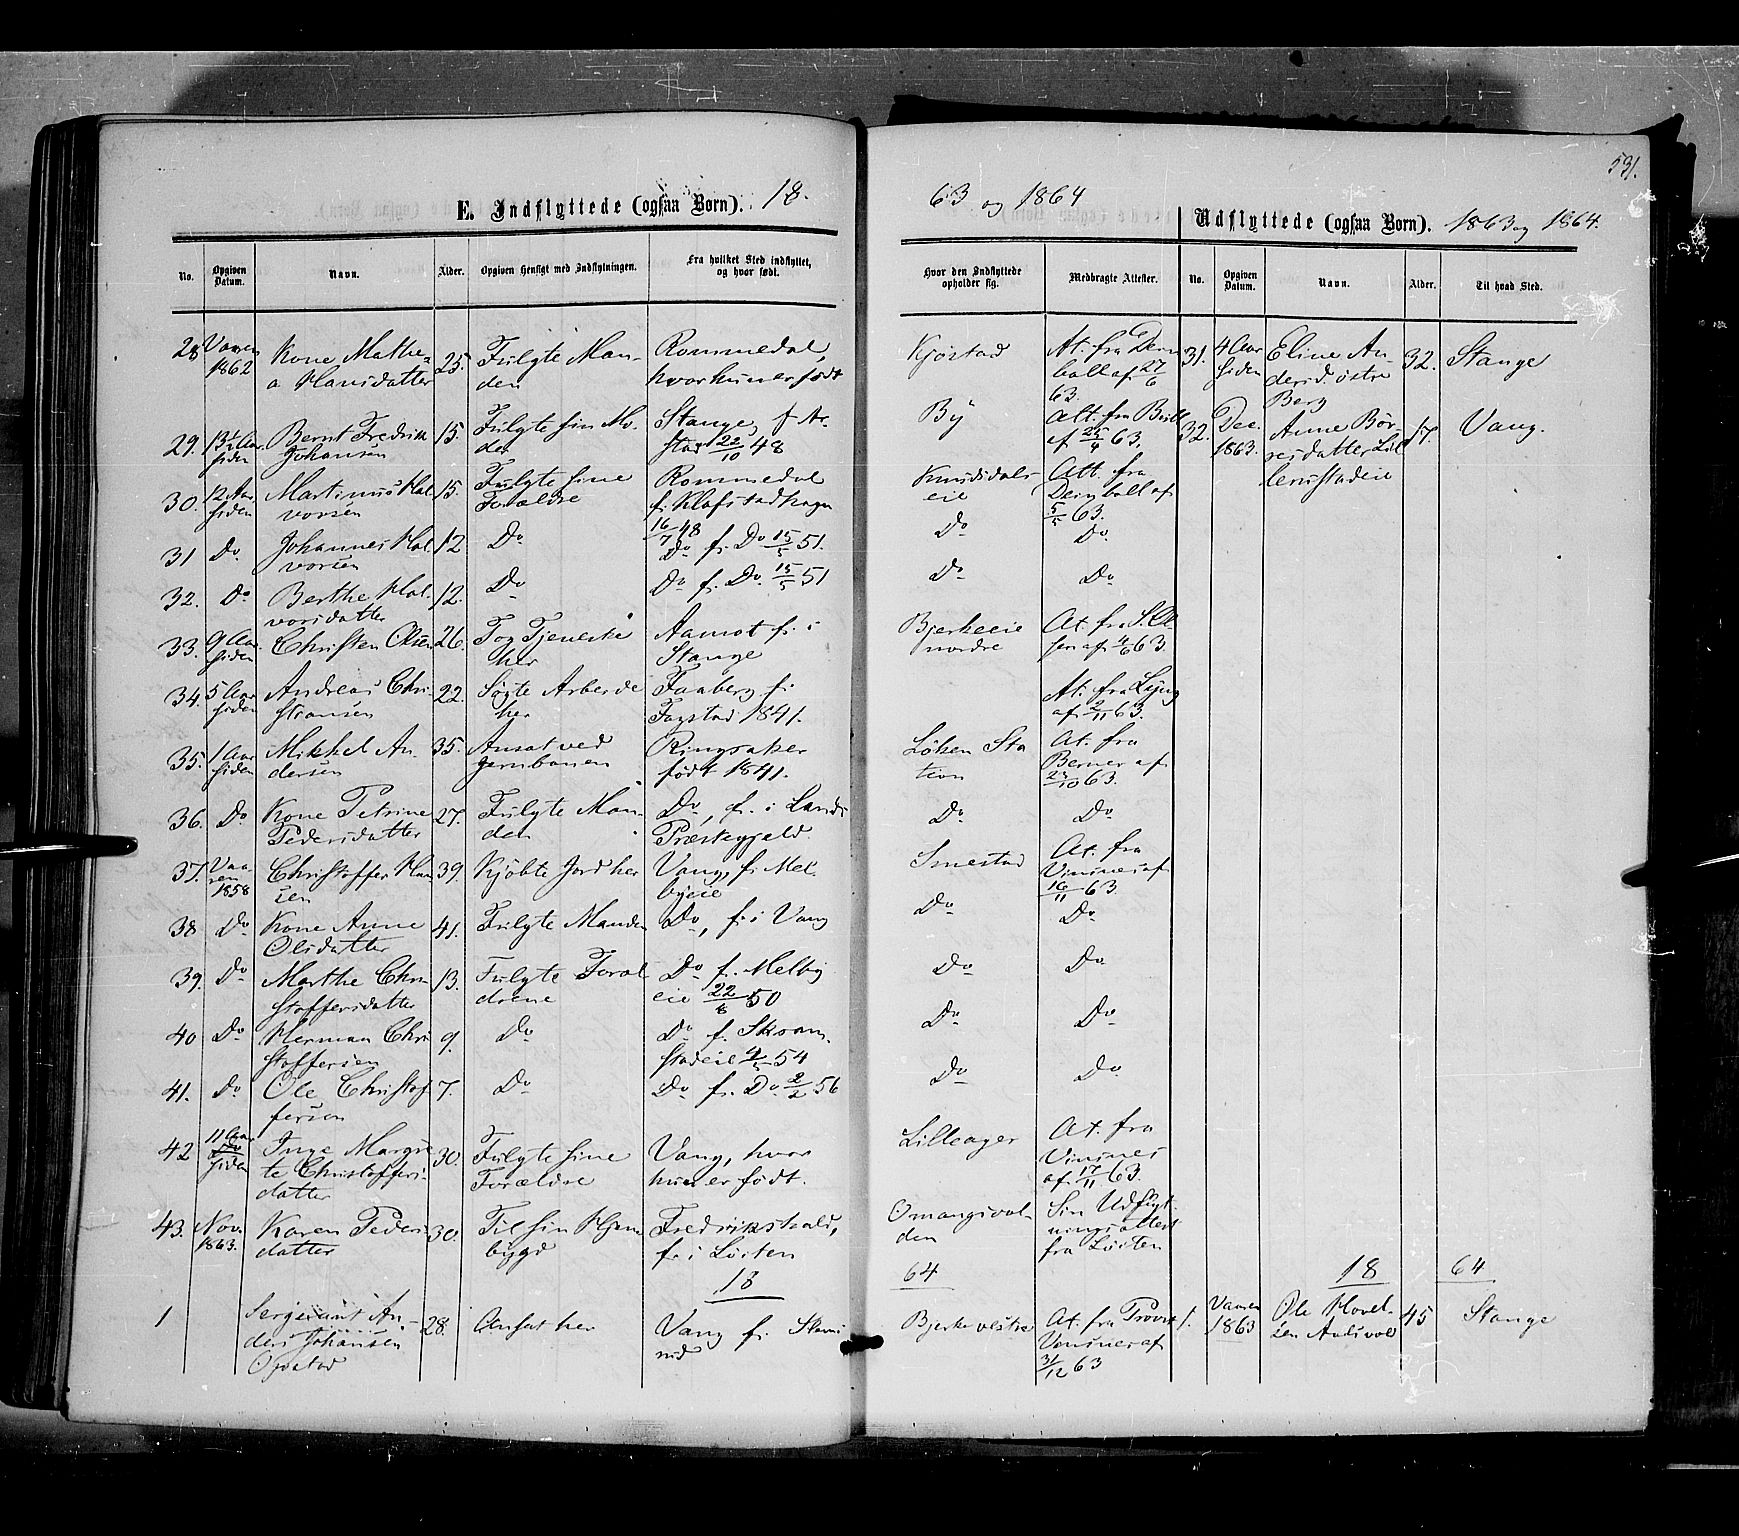 531.
E. Indflyttede (ogsaa Børn). 18
63 og 1864
Udflyttede (ogsaa Børn). 1863 og 1864.
No. Opgiven Datum. Navn. Alder. Opgiven Hensigt med Indflytningen. Fra hvilket Sted indflyttet, og hvor født.
Hvor den Indflyttede opholder sig. Medbragte Attester. No. Opgiven Datum. Navn. Alder. Til hvad Sted.
28 Vaaren 1862 Kone Mathea Hansdatter 25. Fulgte Manden Rommedal, hvor hun er født Kjøstad At. fra 27/6 63.
29. 13½ Aar siden Bernt Fredrik Johansen 15. Fulgte sin Moder Stange, f. 22/10 48 By Att. fra af 25/4 63.
30. 12 Aar siden Martinus Halvorsen 15. Fulgte sine Forældre Rommedal f. Klofstadhagen 16/7 48 Knudsdalseie Att. fra af 5/5 63.
31 Do Johannes Halvorsen 12 Do Do f. Do 15/5 51. Do Do
32. Do Berthe Halvorsdatter 12. Do Do f. Do. 15/5 51 Do Do
33. 9 Aar siden Christen Olsen 26. Tog Tjeneste her Aamot f. i Stange Bjerkeeie nordre At. fra af 4/6 63.
34. 5 Aar siden Andreas Christiansen 22. Søgte Arbeide her Faaberg f. Fagstad 1841. At. fra Lyng af 2/11 63.
35. 1 Aar siden Mikkel Andersen 35. Ansat ved Jernbanen Ringsaker født 1841. Løken Station At. fra Berner af 23/10 63.
36. Do Kone Petrine Pedersdatter 27. Fulgte Manden Do, f. i Lands Præstegjeld. Do Do
37. Vaaren 1858 Christoffer Hansen 39. Kjøbte Jord her Vang, f. Melbyeie Smestad At. fra Vinsnes af 16/11 63.
38 Do Kone Anne Olsdatter 41. Fulgte Manden Do, f. i Vang Do Do
39. Do Marthe Christoffersdatter 13. Fulgte Forældrene Do f. Melbyeie 22/8 50 Do Do
40 Do Herman Christoffersen 9. Do Do f. Skramstadeie 2/5 54 Do Do
41. Do Ole Christoffersen 7. Do Do f. Do. 2/2 56 Do Do
42 11 Aar siden Inge Margrete Christoffersdatter 30. Fulgte sine Forældre Vang, hvor hun er født. Lilleager At. fra Vinsnes af 17/11 63.
43. Nov. 1863. Karen Pedersdatter 30. Til sin Hjembygd Fredrikshald, f. i Løiten Omangsvolden Sin Udflytningsattest fra Løiten
18 64
1 Sergeant Anders Johansen Opsatad 28. Ansat her Vang f. Bjerke vestre At. fra Provst Vinsnes af 31/12 63
31. 4 Aar siden Eline Andersd. østre Berg 32. Stange
32. Dec. 1863. Anne Børresdatter 17. Vang.
18 64
1. Vaaren 1863 Ole Hovelsen 45 Stange